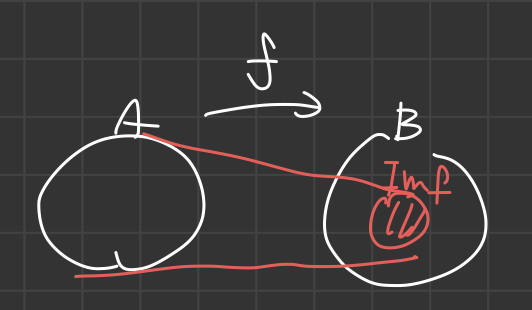 f
A
B
Imf